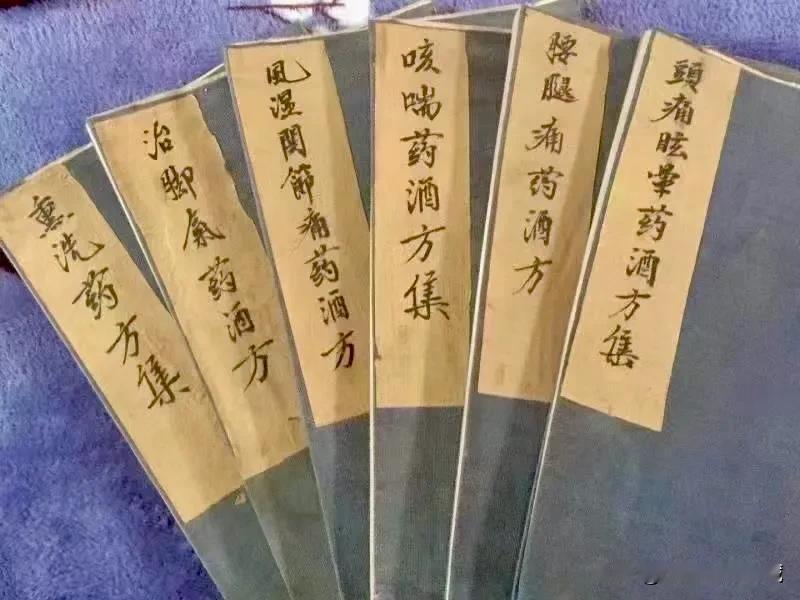 熏洗药方集
治脚氣药酒方
风湿関節痛药酒方
咳喘药酒方集
腰腿痛药酒方
頭痛眩晕药酒方集